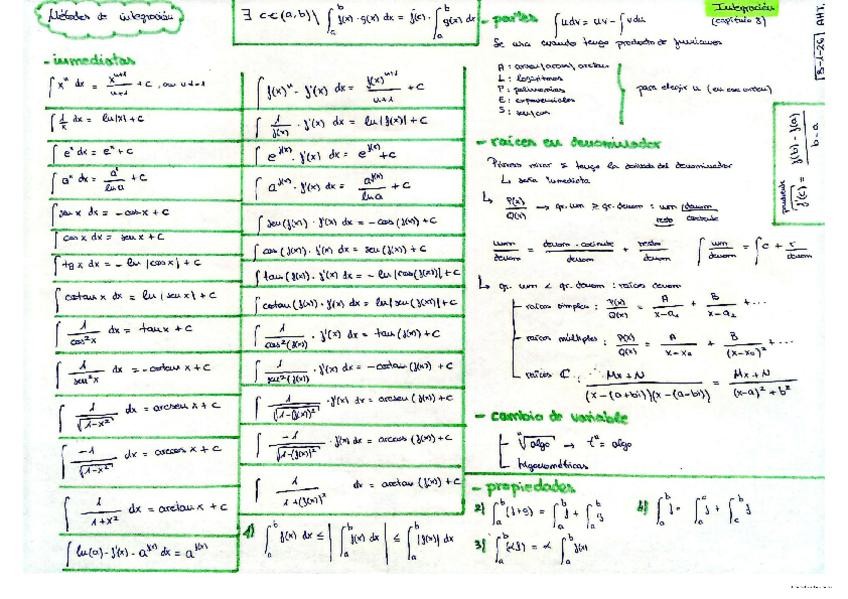 Métodos de integración
∃ c∈(a,b) \ ∫_a^b f(x)·g(x) dx = f(c)·∫_a^b g(x) dx
- inmediatas
∫ x^n dx = x^(n+1)/(n+1) + C, con n≠-1
∫ 1/x dx = ln|x| + C
∫ e^x dx = e^x + C
∫ a^x dx = a^x/ln a + C
∫ sen x dx = -cos x + C
∫ cos x dx = sen x + C
∫ tg x dx = -ln |cos x| + C
∫ cotan x dx = ln |sen x| + C
∫ 1/cos²x dx = tan x + C
∫ 1/sen²x dx = -cotan x + C
∫ 1/√(1-x²) dx = arcsen x + C
∫ -1/√(1-x²) dx = arccos x + C
∫ 1/(1+x²) dx = arctan x + C
∫ ln(a)·f'(x)·a^f(x) dx = a^f(x)
∫ f(x)^n · f'(x) dx = f(x)^(n+1)/(n+1) + C
∫ 1/f(x) · f'(x) dx = ln |f(x)| + C
∫ e^f(x) · f'(x) dx = e^f(x) + C
∫ a^f(x) · f'(x) dx = a^f(x)/ln a + C
∫ sen (f(x)) · f'(x) dx = -cos (f(x)) + C
∫ cos (f(x)) · f'(x) dx = sen (f(x)) + C
∫ tan (f(x)) · f'(x) dx = -ln |cos(f(x))| + C
∫ cotan (f(x)) · f(x) dx = ln |sen (f(x))| + C
∫ 1/cos²(f(x)) · f'(x) dx = tan (f(x)) + C
∫ 1/sen²(f(x)) · f'(x) dx = -cotan (f(x)) + C
∫ 1/√(1-(f(x))²) · f'(x) dx = arcsen (f(x)) + C
∫ -1/√(1-(f(x))²) · f'(x) dx = arccos (f(x)) + C
∫ 1/(1+(f(x))²) dx = arctan (f(x)) + C
1) ∫_a^b f(x) dx ≤ |∫_a^b f(x) dx| ≤ ∫_a^b |f(x)| dx
- partes ∫ u dv = uv - ∫ v du
Integración
(capítulo 8)
Se usa cuando tengo producto de funciones
A :
L : logaritmos
P : polinomios
E : exponenciales
S : sen/cos
para elegir u (en ese orden)
f'(c) = (f(b) - f(a))/(b-a)
- raíces en denominador
Primero mirar si tengo la derivada del denominador
↳ sería inmediata
↳ P(x)/Q(x) → gr. num ≥ gr. denom : num |denom
resto cociente
num/denom = denom · cociente/denom + resto/denom
∫ num/denom = ∫ C + r/denom
↳ gr. num < gr. denom : raíces denom
raíces simples : P(x)/Q(x) = A/(x-a₁) + B/(x-a₂) + ...
raíces múltiples : P(x)/Q(x) = A/(x-x₀) + B/(x-x₀)² + ...
raíces ℂ : (Mx+N)/((x-(a+bi))(x-(a-bi))) = (Mx+N)/((x-a)²+b²)
- cambio de variable
ⁿ√algo → tⁿ = algo
trigonométricas
- propiedades
2) ∫_a^b (f+g) = ∫_a^b f + ∫_a^b g
3) ∫_a^b (αf) = α ∫_a^b f(x)
∫_a^b f = ∫_a^c f + ∫_c^b f